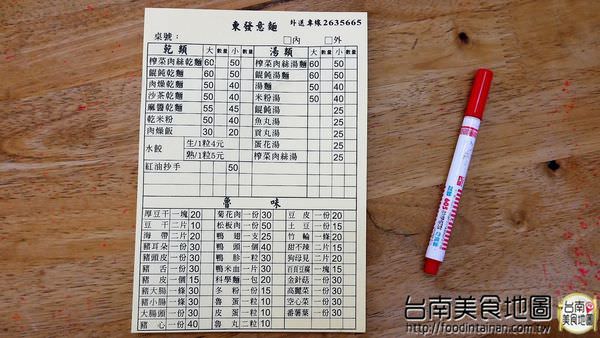 東發意麵 外送專線2635665
桌號： □內 □外
乾類 大 數量 小 數量 湯類 大 數量 小 數量
榨菜肉絲乾麵 60 50 榨菜肉絲湯麵 60 50
餛飩乾麵 60 50 餛飩湯麵 60 50
肉燥乾麵 50 40 湯麵 50 40
沙茶乾麵 50 40 米粉湯 50 40
麻醬乾麵 55 45 餛飩湯 25
乾米粉 50 40 魚丸湯 25
肉燥飯 30 20 貢丸湯 25
水餃 生/1粒4元 蛋花湯 25
熟/1粒5元 榨菜肉絲湯 25
紅油抄手 50
魯味
厚豆干 一塊 20 菊花肉 一份 30 豆皮 一份 20
豆干 二片 10 松板肉 一份 50 素雞 一份 15
海帶 二片 20 鴨翅 一支 25 竹輪 一條 20
豬耳朵 一份 30 鴨頭 一個 40 甜不辣 二片 15
豬頭皮 一份 30 鴨胗 一份 30 狗母見 二片 20
豬舌 一份 30 鴨米血 一片 30 百頁豆腐 一塊 15
豬皮 一個 15 科學麵 一包 20 金針菇 一份 30
豬大腸 一條 30 冬粉 一份 15 高麗菜 一份 30
豬小腸 一條 30 魯蛋 一粒 10 空心菜 一份 30
大腸頭 一份 30 皮蛋 一粒 10 番薯葉 一份 30
豬心 一份 40 魚丸 二粒 10
台南美食地圖
http://foodintainan.com.tw
台南
美食地圖